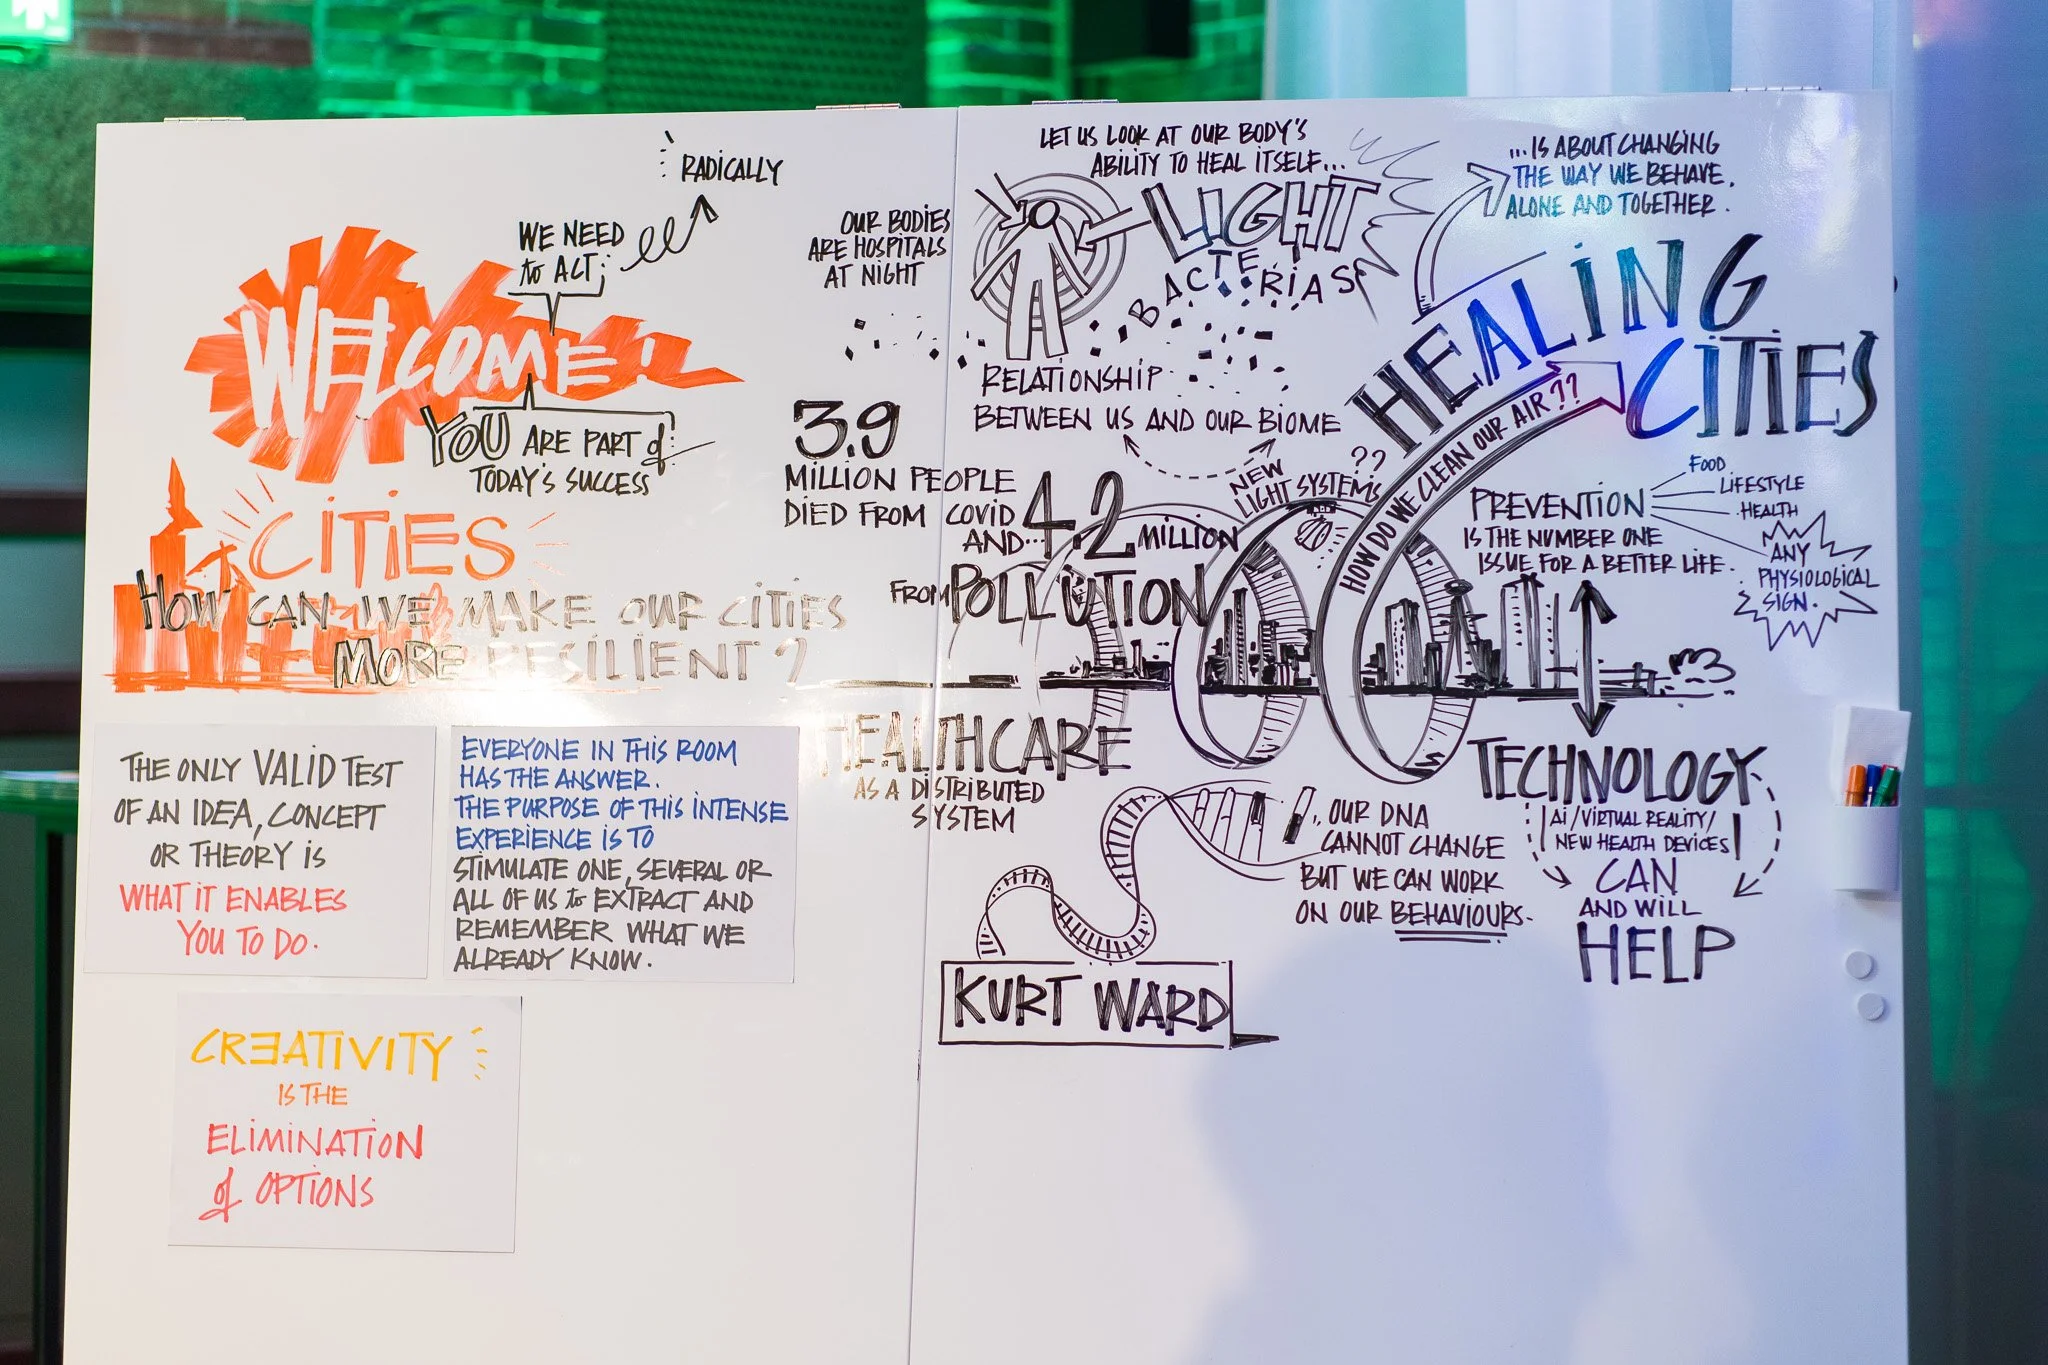 RADICALLY
WE NEED
to ACT
WELCOME!
YOU ARE PART of
TODAY'S SUCCESS
CITIES
HOW CAN WE MAKE OUR CITIES
MORE RESILIENT?
THE ONLY VALID TEST
OF AN IDEA, CONCEPT
OR THEORY IS
WHAT IT ENABLES
YOU TO DO.
EVERYONE IN THIS ROOM
HAS THE ANSWER.
THE PURPOSE OF THIS INTENSE
EXPERIENCE IS TO
STIMULATE ONE, SEVERAL OR
ALL OF US to EXTRACT AND
REMEMBER WHAT WE
ALREADY KNOW.
CREATIVITY
IS THE
ELIMINATION
of OPTIONS
LET US LOOK AT OUR BODY'S
ABILITY TO HEAL ITSELF...
OUR BODIES
ARE HOSPITALS
AT NIGHT
LIGHT
BACTERIAS
RELATIONSHIP
BETWEEN US AND OUR BIOME
3.9
MILLION PEOPLE
DIED FROM COVID
AND... 4.2 MILLION
FROM POLLUTION
NEW
LIGHT SYSTEMS
??
HOW DO WE CLEAN OUR AIR??
...IS ABOUT CHANGING
THE WAY WE BEHAVE,
ALONE AND TOGETHER.
HEALING
CITIES
PREVENTION
IS THE NUMBER ONE
ISSUE FOR A BETTER LIFE.
FOOD
LIFESTYLE
HEALTH
ANY
PHYSIOLOGICAL
SIGN.
HEALTHCARE
AS A DISTRIBUTED
SYSTEM
...OUR DNA
CANNOT CHANGE
BUT WE CAN WORK
ON OUR BEHAVIOURS.
TECHNOLOGY
AI/VIRTUAL REALITY/
NEW HEALTH DEVICES
CAN
AND WILL
HELP
KURT WARD